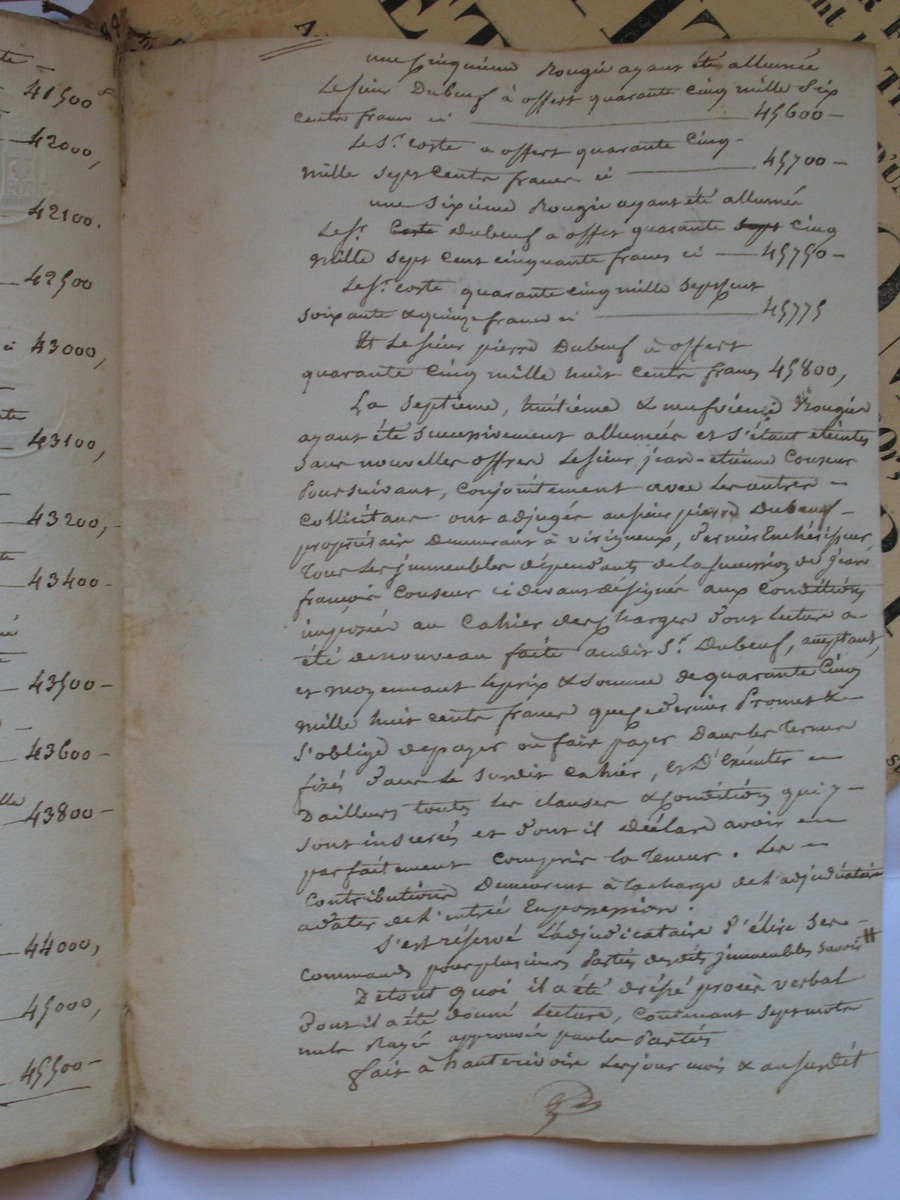 41500
42000,
42100.
42500
43000,
43100,
43200,
43400-
43500-
43600-
43800-
44000,
45000,
45500-
une cinquieme Bougie ayant été allumée
Le sieur Dubeuf à offert quarante cinq mille six
cents francs ci 45600-
Le Sr. coste a offert quarante cinq-
mille sept cents francs ci 45700-
une sixieme Bougie ayant été allumée
Le Sr. Coste Dubeuf a offert quarante sept cinq
mille sept cent cinquante francs ci 45750-
Le Sr. coste quarante cinq mille sept cent
soixante & quinze francs ci 45775
Et Le sieur pierre Dubeuf à offert
quarante cinq mille huit cents francs 45800,
La septieme, huitieme & neufvieme Bougies
ayant été successivement allumées et s'étant éteintes
sans nouvelles offres Le sieur jean-etienne Couseur
Poursuivant, conjointement avec les autres -
Collicitans ont adjugés au sieur pierre Dubeuf-
propriétaire Demeurant à virigneux, Dernier Enchérisseur,
Tous Les jmmeubles dépendants de la succession de jean
françois Couseur ci devant désignés aux Conditions
imposées au Cahier des Charges Dont Lecture a
été de nouveau faite audit Sr. Dubeuf, acceptant,
et moyennant le prix & somme de quarante Cinq
mille huit cents francs que ce dernier Promet &
s'oblige de payer ou faire payer Dans les Termes
fixés Dans Le susdit Cahier, et D'Exécuter -
Dailleurs toutes les clauses & Conditions qui y -
sont inserées et Dont il déclare avoir -
parfaitement compris la Teneur. Les -
Contributions Demeurent à la charge de L'adjudicataire
a dater de L'entrée En possession.
S'est réservé L'adjudicataire D'élire des -
commands pour plusieurs Parties desdits jmmeubles
De tout quoi il a été dréssé procès verbal
Dont il a été donné Lecture, Contenant sept mots
nuls Rayés approuvés par les Parties
fait à hauterivoire Les jour mois & an susdit